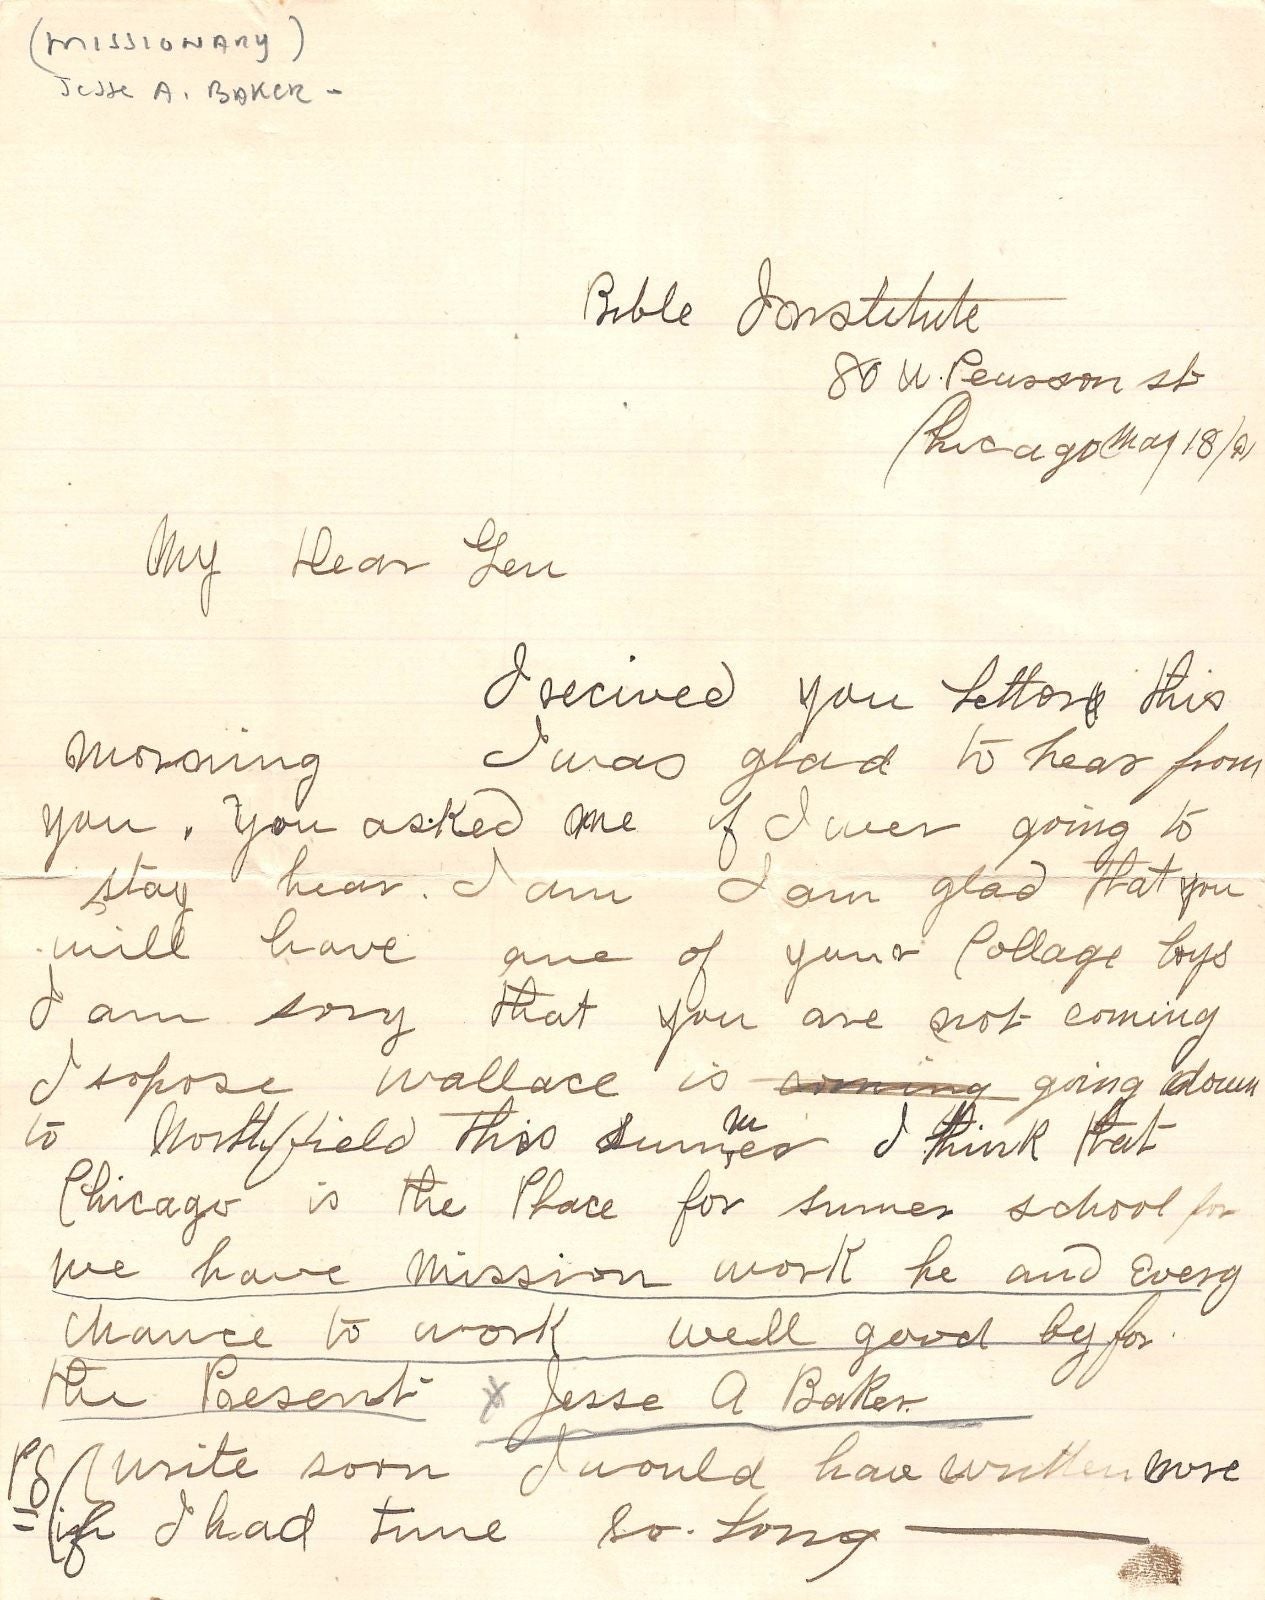 (MISSIONARY)
Jesse A. BAKER -
Bible Institute
80 W. Pearson st
Chicago May 18
My Dear Gen
I recived you Letter this
morning I was glad to hear from
you. You asked me if I wer going to
stay hear. I am I am glad that you
will have one of your Collage boys
I am sory that you are not coming
I sopose wallace is coming going down
to Northfield this summer I think that
Chicago is the Place for sumer school for
we have Mission work he and Every
chance to work well good by for
the Present x Jesse A Baker.
PS (write soon I would have written more
if I had time So. Long